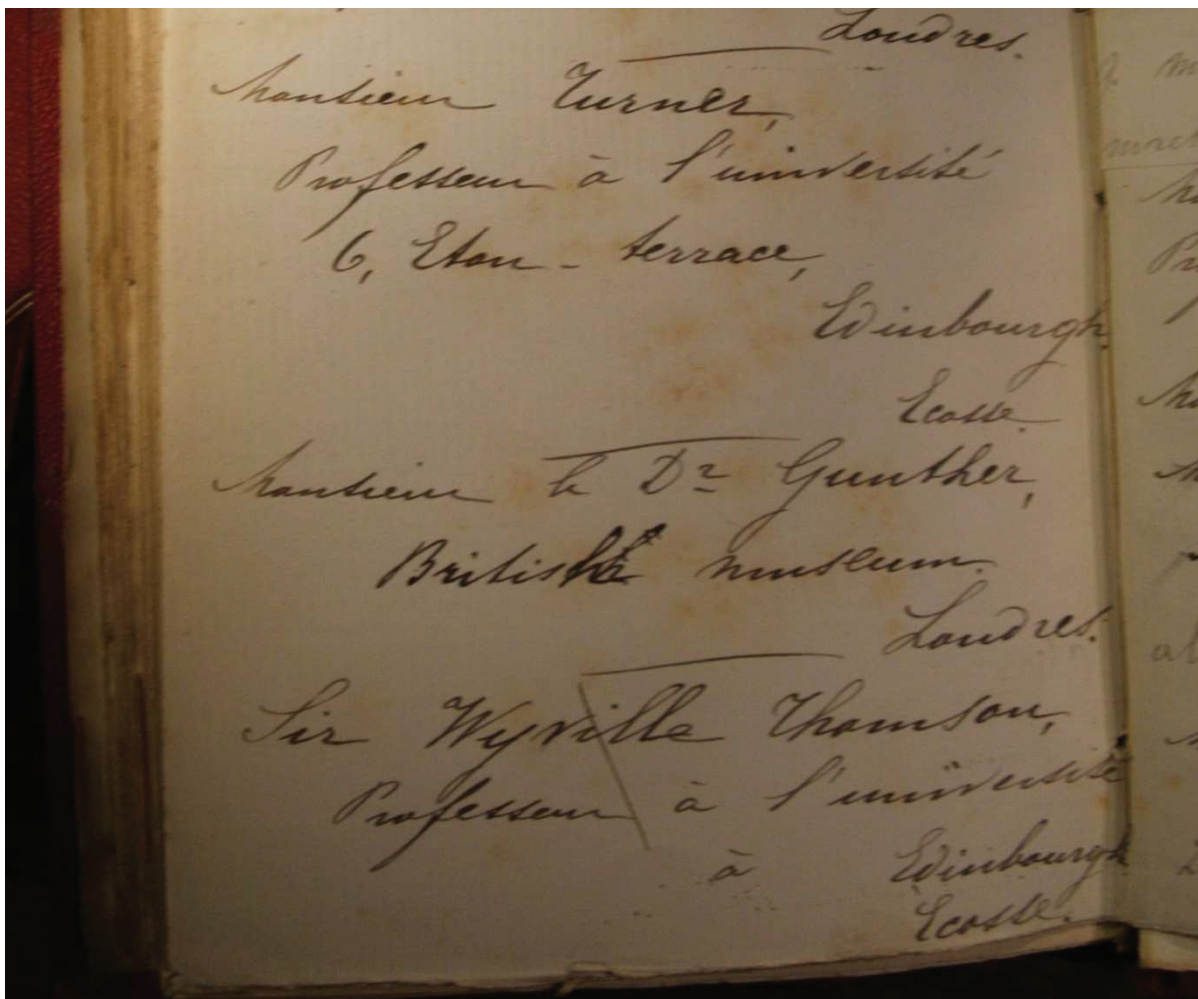 Londres.
Monsieur Turner,
Professeur à l'université
6, Eton - terrace,
Edinbourgh
Ecosse.
Monsieur le Dr Gunther,
British museum.
Londres.
Sir Wyville Thomson,
Professeur à l'université
à Edinbourgh
Ecosse.